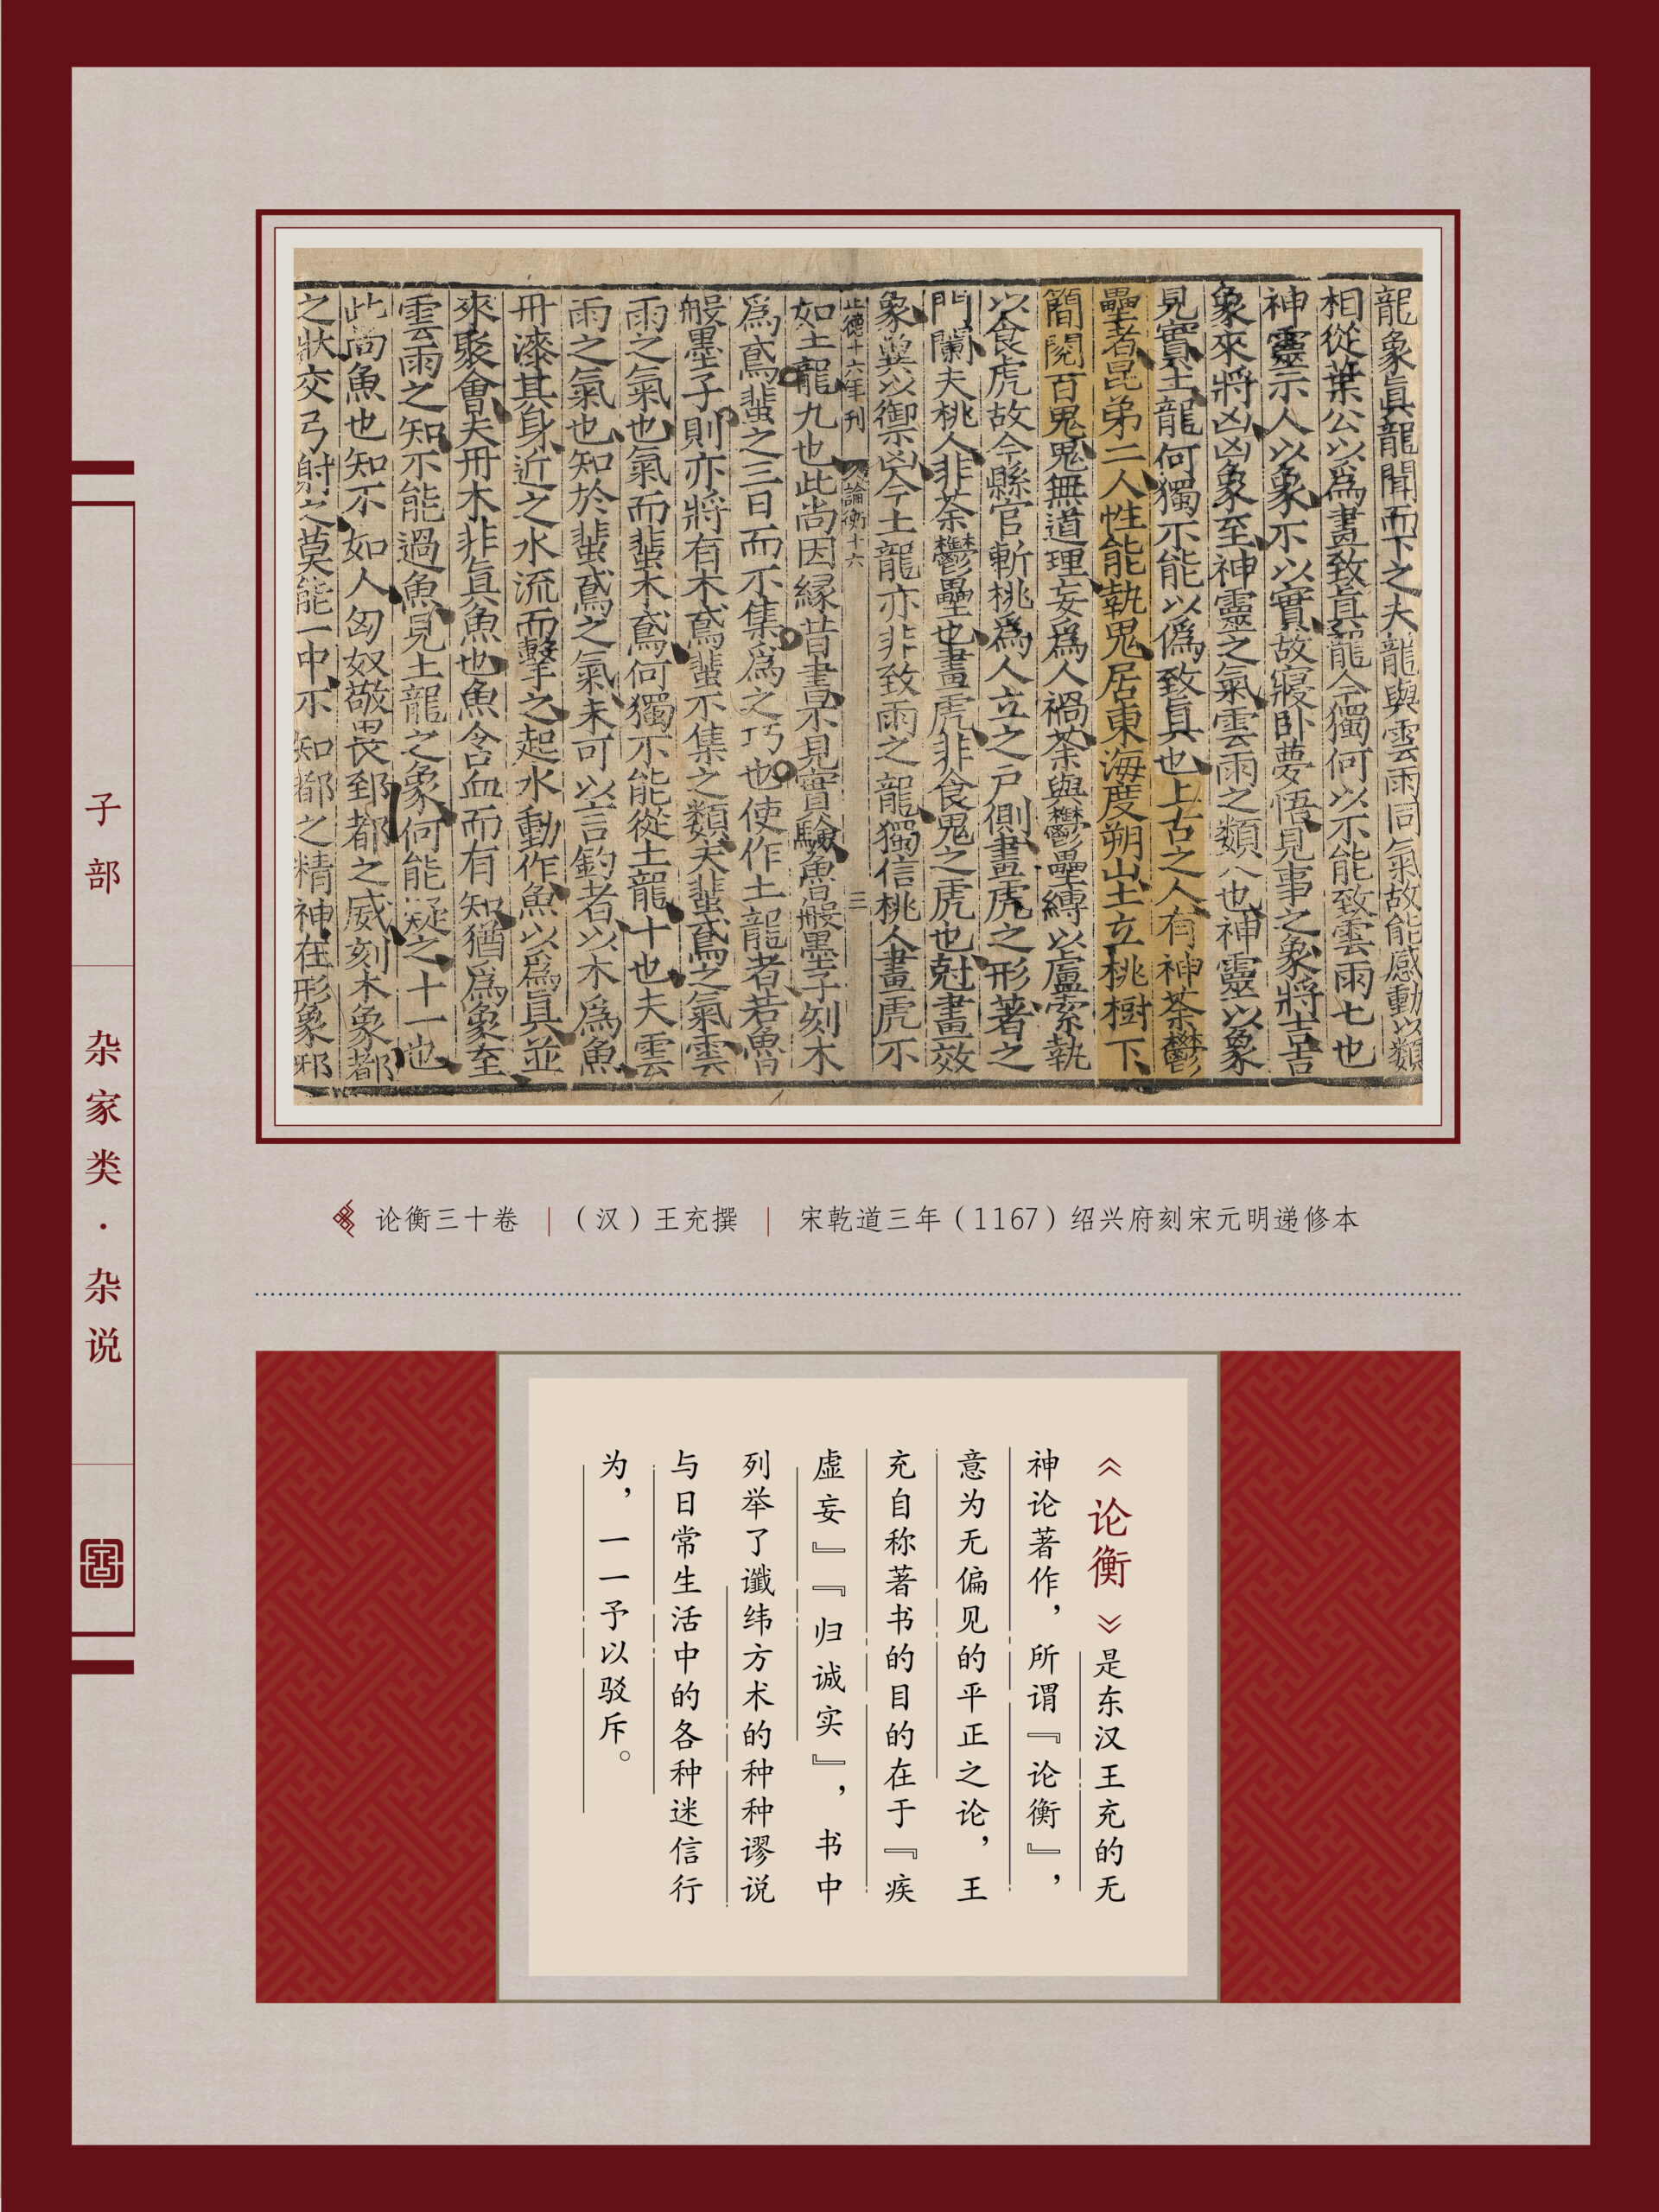 龍象眞龍聞而下之夫龍與雲雨同氣故能感動以類
相從葉公以爲畫致眞龍今獨何以不能致雲雨七也
神靈示人以象不以實故寢卧夢悟見事之象將吉吉
象來將凶凶象至神靈之氣雲雨之類八也神靈以象
見實土龍何獨不能以僞致眞也上古之人有神荼鬱
壘者昆弟二人性能執鬼居東海度朔山上立桃樹下
簡閱百鬼鬼無道理妄爲人禍荼與鬱壘縛以盧索執
以食虎故今縣官斬桃爲人立之戶側畫虎之形著之
門闌夫桃人非荼鬱壘也畫虎非食鬼之虎也尅畫效
象冀以禦凶今土龍亦非致雨之龍獨信桃人畫虎不
德十六年刊
論衡十六
三
如土龍九也此尚因緣昔書不見實驗魯般墨子刻木
爲鳶蜚之三日而不集爲之巧也使作土龍者若魯
般墨子則亦將有木鳶蜚不集之類夫蜚鳶之氣雲
雨之氣也氣而蜚木鳶何獨不能從土龍十也夫雲
雨之氣也知於蜚鳶之氣未可以言釣者以木爲魚
丹漆其身近之水流而擊之起水動作魚以爲眞並
來聚會夫丹木非眞魚也魚含血而有知猶爲象至
雲雨之知不能過魚見土龍之象何能疑之十一也
此尚魚也知不如人匈奴敬畏郅都之威刻木象都
之狀交弓射之莫能一中不知都之精神在形象邪
子部
杂家类·杂说
论衡三十卷 | （汉）王充撰 | 宋乾道三年（1167）绍兴府刻宋元明递修本
《论衡》是东汉王充的无
神论著作，所谓『论衡』，
意为无偏见的平正之论，王
充自称著书的目的在于『疾
虚妄』『归诚实』，书中
列举了谶纬方术的种种谬说
与日常生活中的各种迷信行
为，一一予以驳斥。